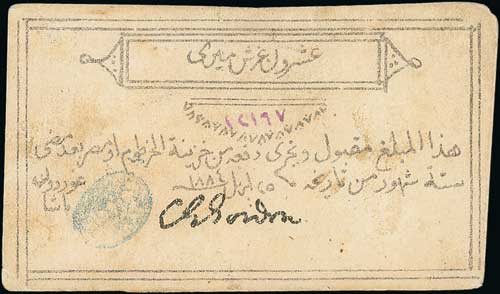 عشرون غرش ميرى
١٤١٩٧
هذا المبلغ مقبول ويجرى دفعه من خزينة الخرطوم او مصر بعد مضى
ستة شهور من تاريخه ٢٥ ابريل ١٨٨٤
غوردون
باشا
C G Gordon